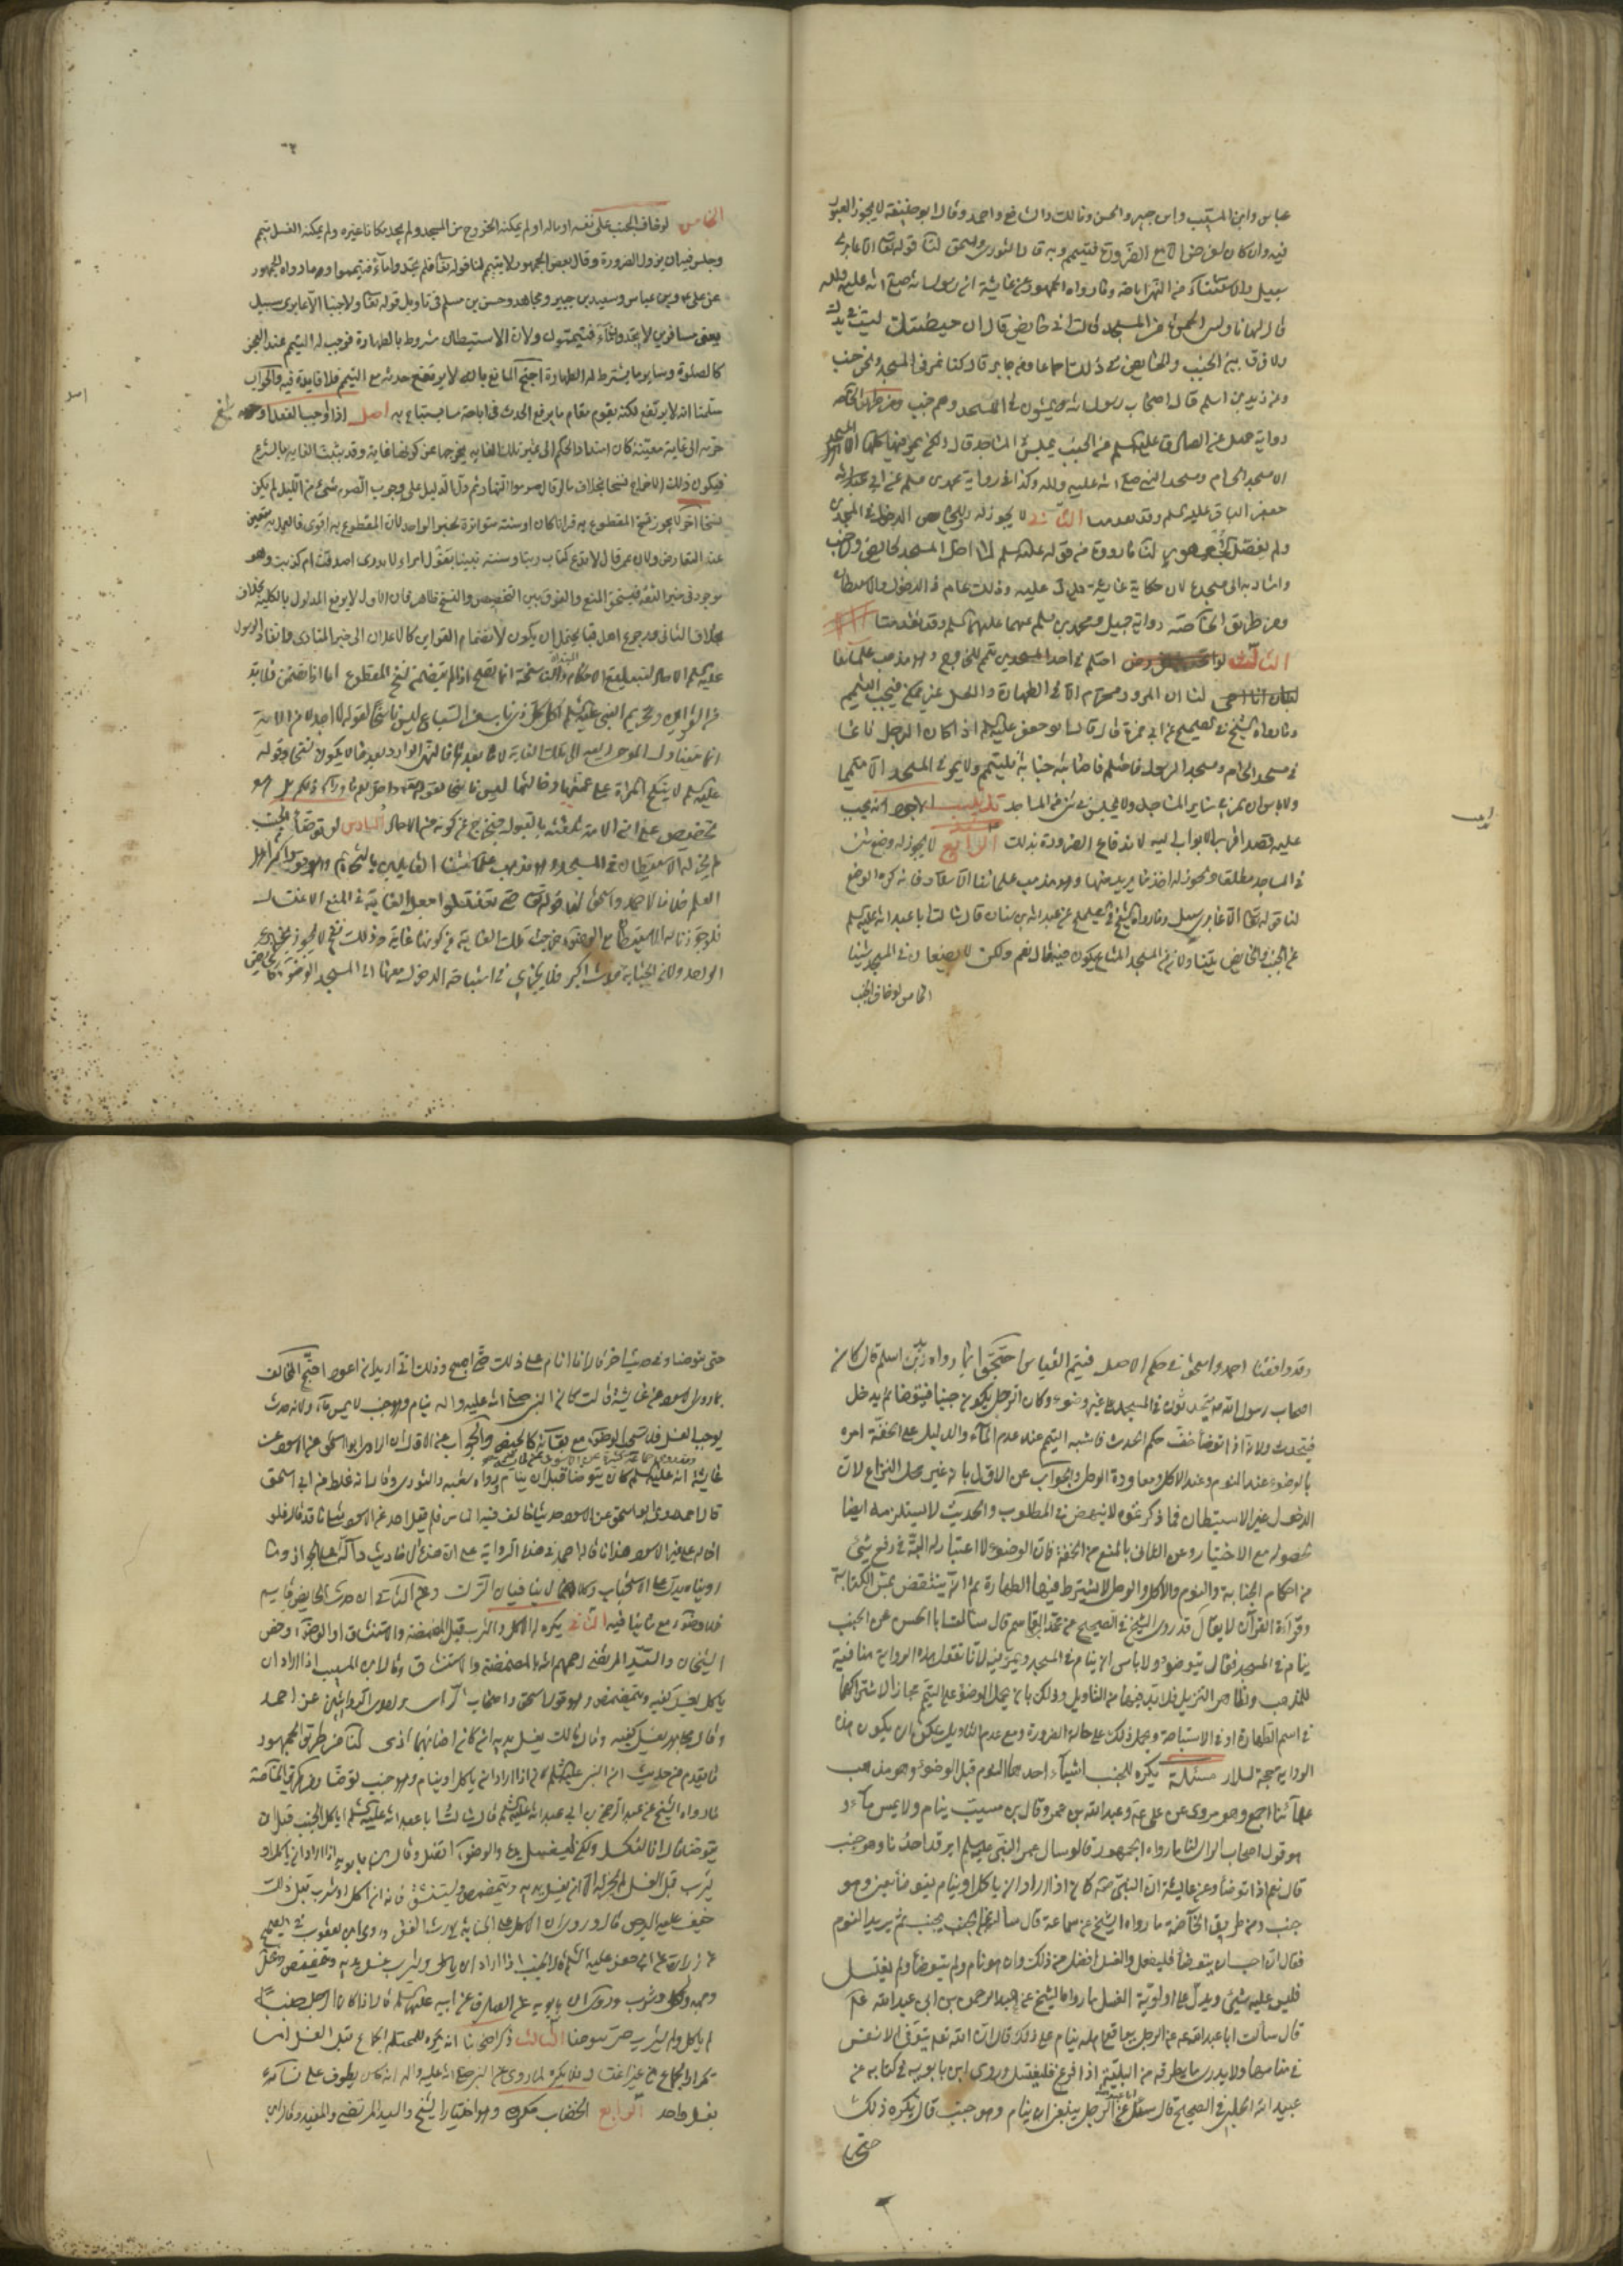 عباس وابن المسيب وابن جبير والحسن ومالك والشافعي واحمد وقال ابو حنيفة لا يجوز العبور
فيه وان كان لغرض الا مع الضرورة فيتيمم وبه قال الثوري واسحق لنا قوله تعالى الا عابري
سبيل والاستثناء من النهي اباحة وما رواه الجمهور عن عايشة ان رسول الله صلى الله عليه وآله
قال لها ناوليني الخمرة من المسجد قالت اني حايض قال ان حيضتك ليست في يدك
ولا فرق بين الجنب والحايض في ذلك اجماعا وعن جابر قال كنا نمر في المسجد ونحن جنب
وعن زيد بن اسلم قال اصحاب رسول الله يمشون في المسجد وهم جنب ومن طريق الخاصة
رواية جميل عن الصادق عليه السلم عن الجنب يجلس في المساجد قال لا ولكن يمر فيها كلها
الا المسجد الحرام ومسجد النبي صلى الله عليه وآله وكذا في رواية محمد بن مسلم عن ابي
جعفر الباقر عليه السلم وقد تقدمتا الثاني لا يجوز له الدخول في المسجدين
ولم يفصل الجمهور لنا ما رووه من قوله عليه السلم لا احل المسجد لحايض ولا جنب
واشار به الى مسجده لان حكاية عايشة تدل عليه وذلك عام في الدخول والاستيطان
ومن طريق الخاصة رواية جميل ومحمد بن مسلم عنهما عليهما السلم وقد تقدمتا
الثالث لو احتلم في احد المسجدين تيمم للخروج وهو مذهب علمائنا
لنا ان المرور محرم الا مع الطهارة والغسل غير ممكن فيجب التيمم
وما رواه الشيخ في الصحيح عن ابي حمزة قال قال ابو جعفر عليه السلم اذا كان الرجل نائما
في مسجد الحرام ومسجد الرسول فاحتلم فاصابته جنابة فليتيمم ولا يمر في المسجد الا متيمما
ولا باس ان يمر في ساير المساجد ولا يجلس في شيء من المساجد تذنيب الاجود انه يجب
عليه قصد اقرب الابواب اليه لاندفاع الضرورة بذلك الرابع لا يجوز له وضع شيء
في المساجد مطلقا ويجوز له اخذ ما يريد منها وهو مذهب علمائنا الا سلار فانه كره الوضع
لنا قوله تعالى الا عابري سبيل وما رواه الشيخ في الصحيح عن عبد الله بن سنان قال سالت ابا عبد الله عليه السلم
عن الجنب والحايض يتناولان من المسجد المتاع يكون فيه قال نعم ولكن لا يضعان في المسجد شيئا
الخامس لو خاف الجنب
الخامس لو خاف الجنب على نفسه او ماله او لم يمكنه الخروج من المسجد ولم يجد مكانا غيره ولم يمكنه الغسل تيمم
وجلس فيه الى ان يزول الضرورة وقال بعض الجمهور لا يتيمم لنا قوله تعالى فلم تجدوا ماء فتيمموا وما رواه الجمهور
عن علي ع وابن عباس وسعيد بن جبير ومجاهد وحسن بن مسلم في تاويل قوله تعالى ولا جنبا الا عابري سبيل
يعني مسافرين لا يجدون ماء فيتيممون ولان الاستيطان مشروط بالطهارة فوجب له التيمم عند العجز
كالصلوة وساير ما يشترط له الطهارة احتج المانع بانه لا يرتفع حدثه مع التيمم فلا فايدة فيه والجواب
سلمنا انه لا يرتفع لكنه يقوم مقام ما يرفع الحدث في اباحة ما يستباح به اصل اذا اوجب الفعل او
حرم الى غاية معينة كان امتداد الحكم الى غير تلك الغاية يخرجها عن كونها غاية وقد يثبت الغاية بالشرع
فيكون ذلك الاخراج نسخا بخلاف ما لو قال صوموا النهار ثم دل الدليل على وجوب الصوم شيء من الليل لم يكن
نسخا اخر لا يجوز نسخ المقطوع به قرانا كان او سنة متواترة بخبر الواحد لان المقطوع به اقوى فالعمل به متعين
عند التعارض ولان عمر قال لا ندع كتاب ربنا وسنة نبينا بقول امراة لا ندري اصدقت ام كذبت وهو
موجود في خبر الثقة فيتحقق المنع والفرق بين التخصيص والنسخ ظاهر فان الاول لا يرفع المدلول بالكلية بخلاف
بخلاف الثاني ورجوع اهل قبا يحتمل ان يكون لانضمام القراين كالاعلان الى خبر المنادي وانفاذ الرسول
عليه السلم الاحاد لتبليغ الاحكام المبتداة والناسخة انما يصح اذا لم يتضمن نسخ المقطوع اما اذا تضمن فلا بد
من القراين وتحريم النبي عليه السلم اكل كل ذي ناب من السباع ليس ناسخا لقوله لا اجد لان الاية
انما تتناول الموحى اليه الى تلك الغاية لا ما بعدها فالنهي الوارد بعدها لا يكون نسخا وقوله
عليه السلم لا ينكح المراة على عمتها وخالتها ليس ناسخا لقوله تعالى واحل لكم ما وراء ذلكم بل هو
تخصيص على ان الامة تلقته بالقبول فيخرج عن كونه خبر الاحاد السادس لو توضا الجنب
لم يجز له الاستيطان في المسجد وهو مذهب علمائنا القايلين بالتحريم وهو قول اكثر اهل
العلم خلافا لاحمد واسحق لنا قوله تعالى حتى تغتسلوا جعل الغاية في المنع الاغتسال
فلو جوزنا له الاستيطان مع الوضوء خرجت تلك الغاية عن كونها غاية وذلك نسخ لا يجوز بخبر
الواحد ولان الجنابة حدث اكبر فلا يجزي في استباحة الدخول معها الى المسجد الوضوء كالحايض
وقد وافقنا احمد واسحق في حكم الاصل فيتم القياس احتجا بما رواه زيد بن اسلم قال كان
اصحاب رسول الله ص يتحدثون في المسجد على غير وضوء وكان الرجل يكون جنبا فيتوضا ثم يدخل
فيتحدث ولانه اذا توضا خف حكم الحدث فاشبه التيمم عند عدم الماء والدليل على الخفة امره
بالوضوء عند النوم وعند الاكل ومعاودة الوطي والجواب عن الاول بانه غير محل النزاع لان
الدخول غير الاستيطان فما ذكرتموه لا ينهض في المطلوب والحديث لا يستلزمه ايضا
لحصوله مع الاختيار وعن الثاني بالمنع من الخفة فان الوضوء لا اعتبار له البتة في رفع شيء
من احكام الجنابة والنوم والاكل والوطي لا يشترط فيها الطهارة ثم انه ينتقض بمس الكتابة
وقراءة القران لا يقال قد روى الشيخ في الصحيح عن محمد بن القاسم قال سالت ابا الحسن عن الجنب
ينام في المسجد فقال يتوضؤ ولا باس ان ينام في المسجد ويمر فيه لانا نقول هذه الرواية منافية
للمذهب ولظاهر التنزيل فلا بد فيها من التاويل وذلك بان يحمل الوضوء على التيمم مجازا لاشتراكهما
في اسم الطهارة او في الاستباحة ويحمل ذلك على حالة الضرورة ومع عدم التاويل يمكن ان يكون هذه
الرواية حجة لسلار مسئلة يكره للجنب اشياء احدها النوم قبل الوضوء وهو مذهب
علمائنا اجمع وهو مروي عن علي ع وعبد الله بن عمر وقال ابن مسيب ينام ولا يمس ماء و
هو قول اصحاب الراي لنا ما رواه الجمهور قالوا سال عمر النبي عليه السلم ايرقد احدنا وهو جنب
قال نعم اذا توضا وعن عايشة ان النبي ص كان اذا اراد ان ياكل او ينام يتوضا يعني وهو
جنب ومن طريق الخاصة ما رواه الشيخ عن سماعة قال سالته عن الجنب يجنب ثم يريد النوم
فقال ان احب ان يتوضا فليفعل والغسل افضل من ذلك وان هو نام ولم يتوضا ولم يغتسل
فليس عليه شيئ ويدل على اولوية الغسل ما رواه الشيخ عن عبد الرحمن بن ابي عبد الله
قال سالت ابا عبد الله ع عن الرجل يواقع اهله ينام على ذلك قال ان الله تعالى يتوفى الانفس
في منامها ولا يدري ما يطرقه من البلية اذا فرغ فليغتسل وروى ابن بابويه في كتابه عن
عبيد الله الحلبي في الصحيح قال سئل عن الرجل ينبغي ان ينام وهو جنب قال يكره ذلك
حتى
حتى يتوضا وفي حديث اخر قال انا انام على ذلك حتى اصبح وذلك اني اريد ان اعود احتج المخالف
بما رواه الاسود عن عايشة قالت كان النبي صلى الله عليه واله ينام وهو جنب لا يمس ماء ولانه حدث
يوجب الغسل فلا يستحب الوضوء مع بقائه كالحيض والجواب عن الاول ان الراوي ابو اسحق عن الاسود عن
عايشة انه عليه السلم كان يتوضا قبل ان ينام رواه شعبة والثوري وقال انه غلط من ابي اسحق
قال احمد روى ابو اسحق عن الاسود حديثا خالف فيه الناس فلم يقل احد عن الاسود مثل ما قد قال فلو
احاله على غير الاسود هذا ما قاله احمد في هذه الرواية على ان هذه الاحاديث دالة على الجواز وما
رويناه يدل على الاستحباب وكلاهما لا يتنافيان وعن الثاني ان حدث الحايض قايم
فلا وضوء مع ما ينافيه الثاني يكره له الاكل والشرب قبل المضمضة والاستنشاق او الوضوء وخص
الشيخان والسيد المرتضى رحمهم الله بالمضمضة والاستنشاق وقال ابن المسيب اذا اراد ان
ياكل يغسل كفيه ويتمضمض وهو قول اسحق واصحاب الراي واحدى الروايتين عن احمد
وقال مجاهد يغسل كفيه وقال مالك يغسل يديه ان كان اصابهما اذى لنا من طريق الجمهور
ما تقدم من حديث ان النبي عليه السلم كان اذا اراد ان ياكل او ينام وهو جنب توضا ومن طريق الخاصة
ما رواه الشيخ عن عبد الرحمن بن ابي عبد الله قال سالت ابا عبد الله عليه السلم اياكل الجنب قبل ان
يتوضا قال انا لنكسل ولكن ليغسل يده والوضوء افضل وقال ابن بابويه اذا اراد ان ياكل او
يشرب قبل الغسل لم يجز له الا ان يغسل يديه ويتمضمض ويستنشق فانه ان اكل او شرب قبل ذلك
خيف عليه البرص قال وروي ان الاكل على الجنابة يورث الفقر وروى ابن يعقوب في الصحيح
عن زرارة عن ابي جعفر عليه السلم قال الجنب اذا اراد ان ياكل ويشرب غسل يديه وتمضمض وغسل
وجهه واكل وشرب وروى ابن بابويه عن الصادق عن ابيه عليهما السلم قال اذا كان الرجل جنبا
لم ياكل ولم يشرب حتى يتوضا الثالث ذكر اصحابنا انه يكره للمحتلم الجماع قبل الغسل اما
تكرار الجماع من غير اغتسال فلا يكره لما روي عن النبي صلى الله عليه واله انه كان يطوف على نسائه
بغسل واحد الرابع الخضاب مكروه وهو اختيار الشيخ والسيد المرتضى والمفيد وقال ابن